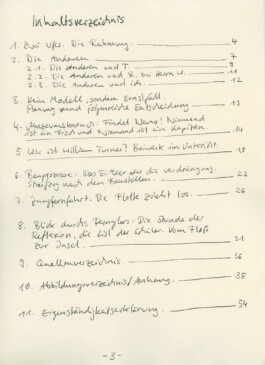 Inhaltsverzeichnis
1. Zwei Ufer. Die Rahmung 4
2. Die Anderen 7
2.1. Die Anderen und T. 9
2.2. Die Anderen und R. bei Herrn W. 11
2.3. Die Anderen und ich. 12
3. Kein Modell, sondern Ernstfall.
Planung und folgenreiche Entscheidung 13
4. Museumsbesuch: Findet Nemo! Niemand
ist ein Fisch und Niemand ist ein Kapitän. 14
5. Wer ist William Turner? Beiwerk im Unterricht. 18
6. Bauprozesse: Das der die
Streifzug nach den Baustellen. 22
7. Jungfernfahrt. Die Flotte zieht los. 26
8. Blicke durchs Fernglas: Die Stunde der
Reflexion, die List der Schüler. Vom Floß
zur Insel. 31
9. Quellenverzeichnis. 36
10. Abbildungsverzeichnis/Anhang. 38
11. Eigenständigkeitserklärung. 54
- 3 -